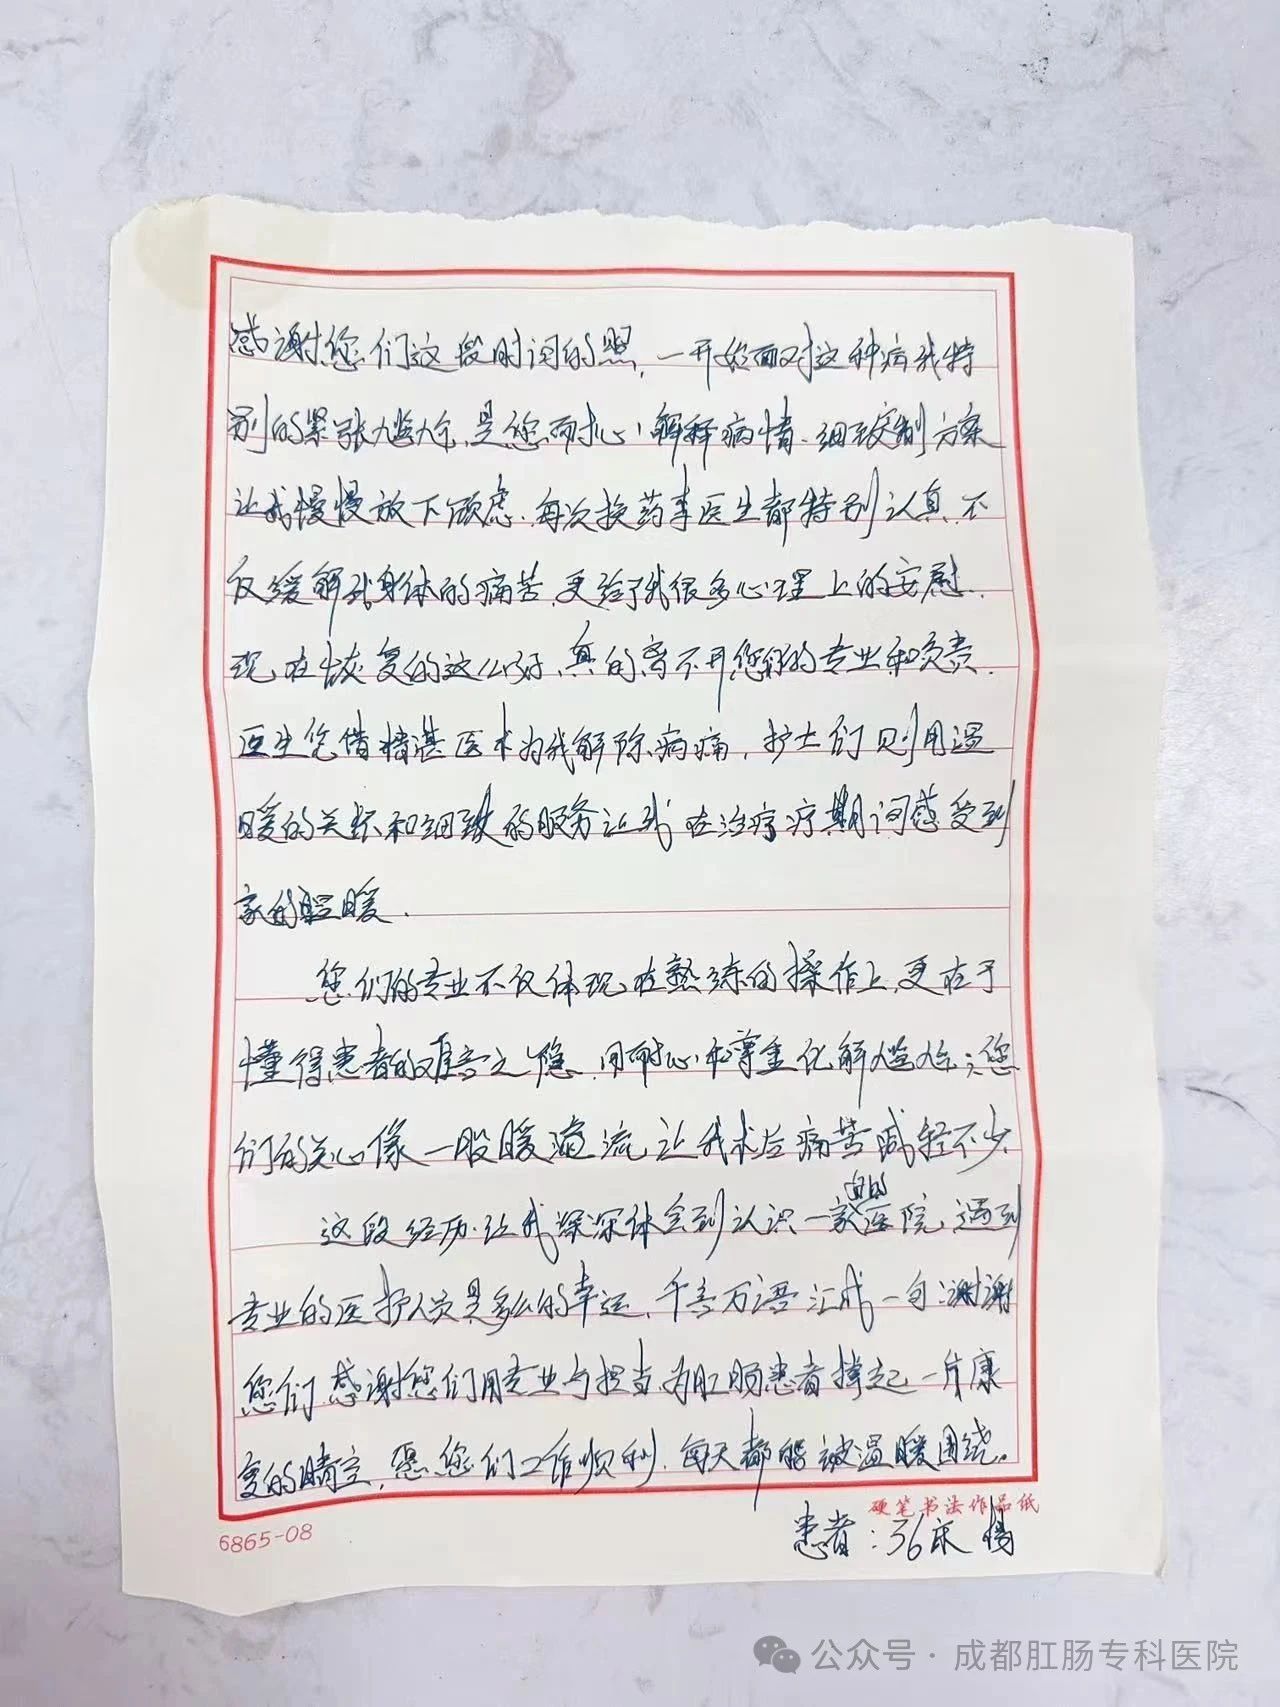 感谢您们这段时间的照，一开始面对这种病我特
别的紧张尴尬，是您耐心解释病情、细致定制方案
让我慢慢放下顾虑。每次换药李医生都特别认真，不
仅缓解我身体的痛苦，更给了我很多心理上的安慰，
现在恢复的这么好，真的离不开您们的专业和负责。
医生凭借精湛医术为我解除病痛，护士们则用温
暖的关怀和细致的服务让我在治疗疗期间感受到
家的温暖.
您们的专业不仅体现在熟练的操作上，更在于
懂得患者的难言之隐，用耐心和尊重化解尴尬；您
们的关心像一股暖流，让我术后痛苦减轻不少.
这段经历，让我深深体会到认识一家医院，遇到
专业的医护人员是多么的幸运，千言万语汇成一句：谢谢
您们，感谢您们用专业与担当，为肛肠患者撑起一片康
复的晴空，愿您们工作顺利，每天都能被温暖围绕。
硬笔书法作品纸
6865-08
患者：36床 杨
公众号·成都肛肠专科医院